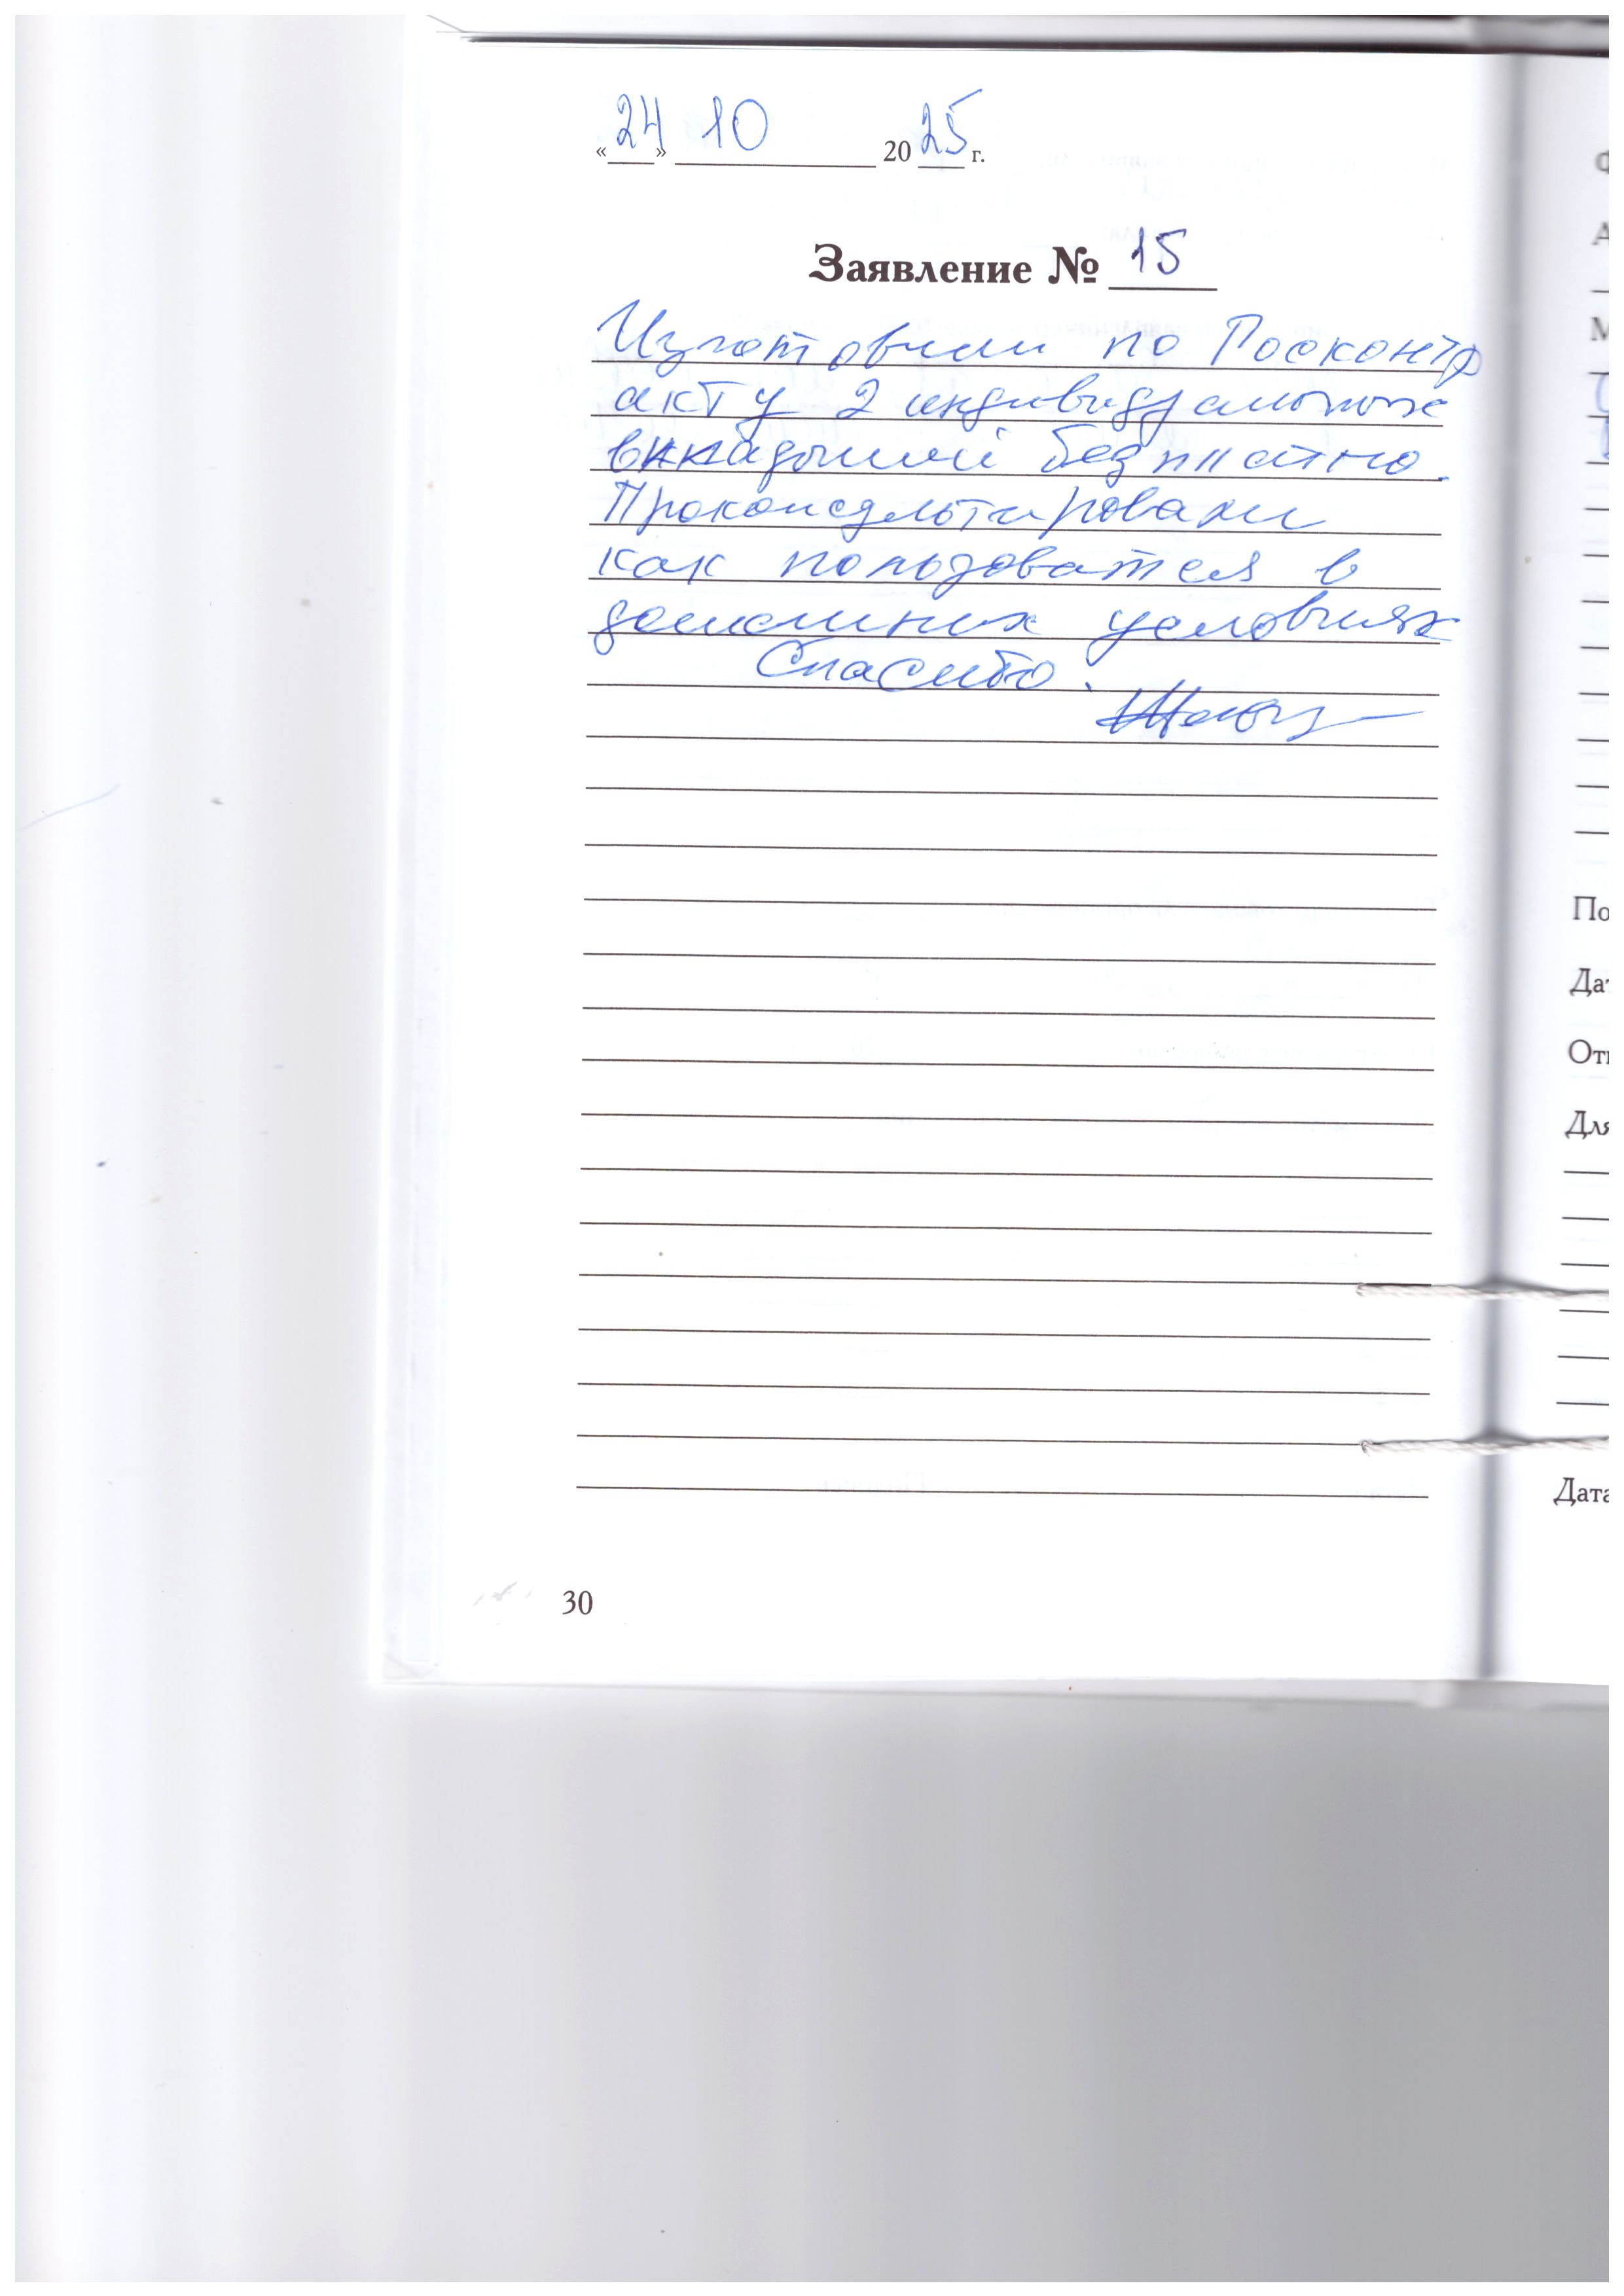 «24» 10 2025 г.
Заявление № 15
Изготовили по Госконтр
акту 2 индивидуальных
вкладышей безплатно.
Проконсультировали
как пользоватся в
домашних условиях
Спасибо.
30
Ф
А
М
По
Дат
От
Для
Дата